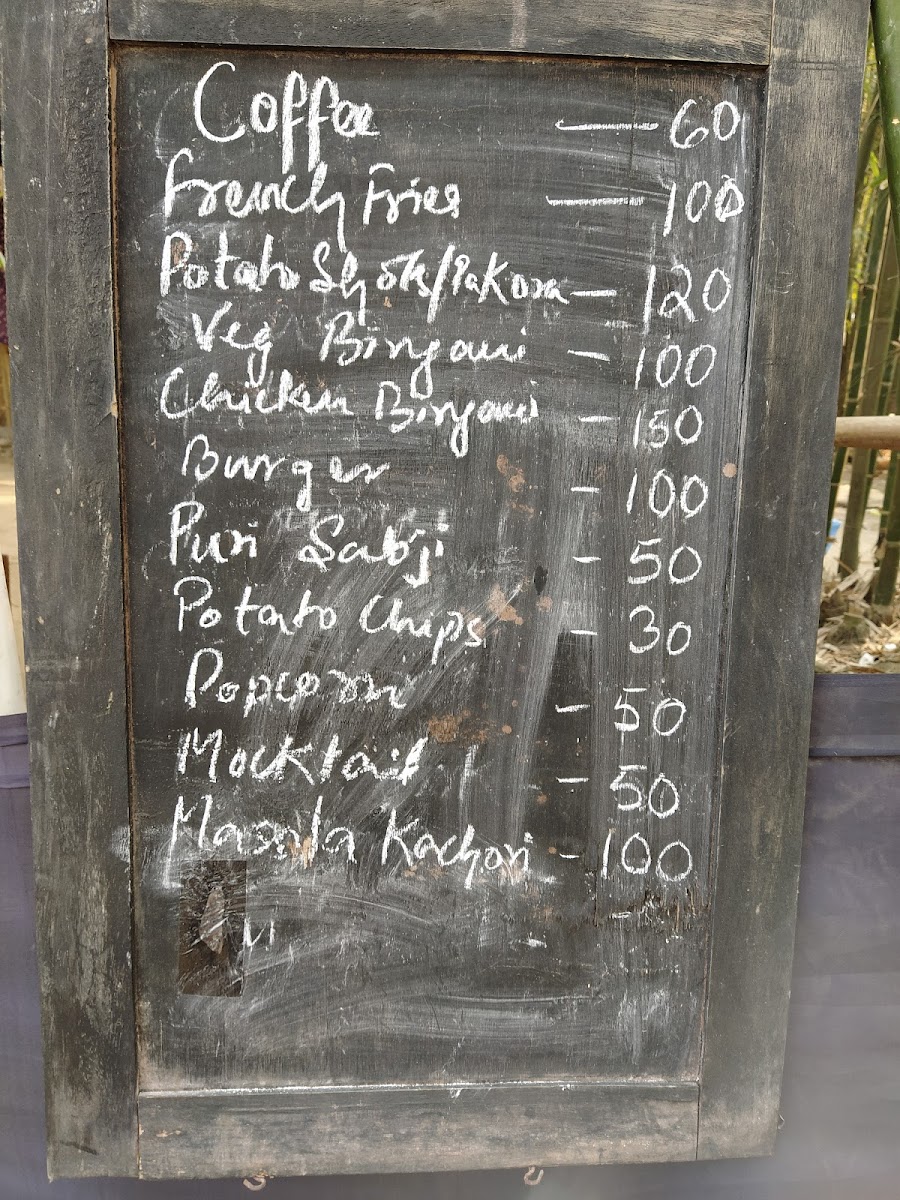 Coffee — 60
French Fries — 100
Potato Shots/Pakora — 120
Veg Biryani - 100
Chicken Biryani - 150
Burger - 100
Puri Sabji - 50
Potato Chips - 30
Popcorn - 50
Mocktail - 50
Masala Kachori - 100